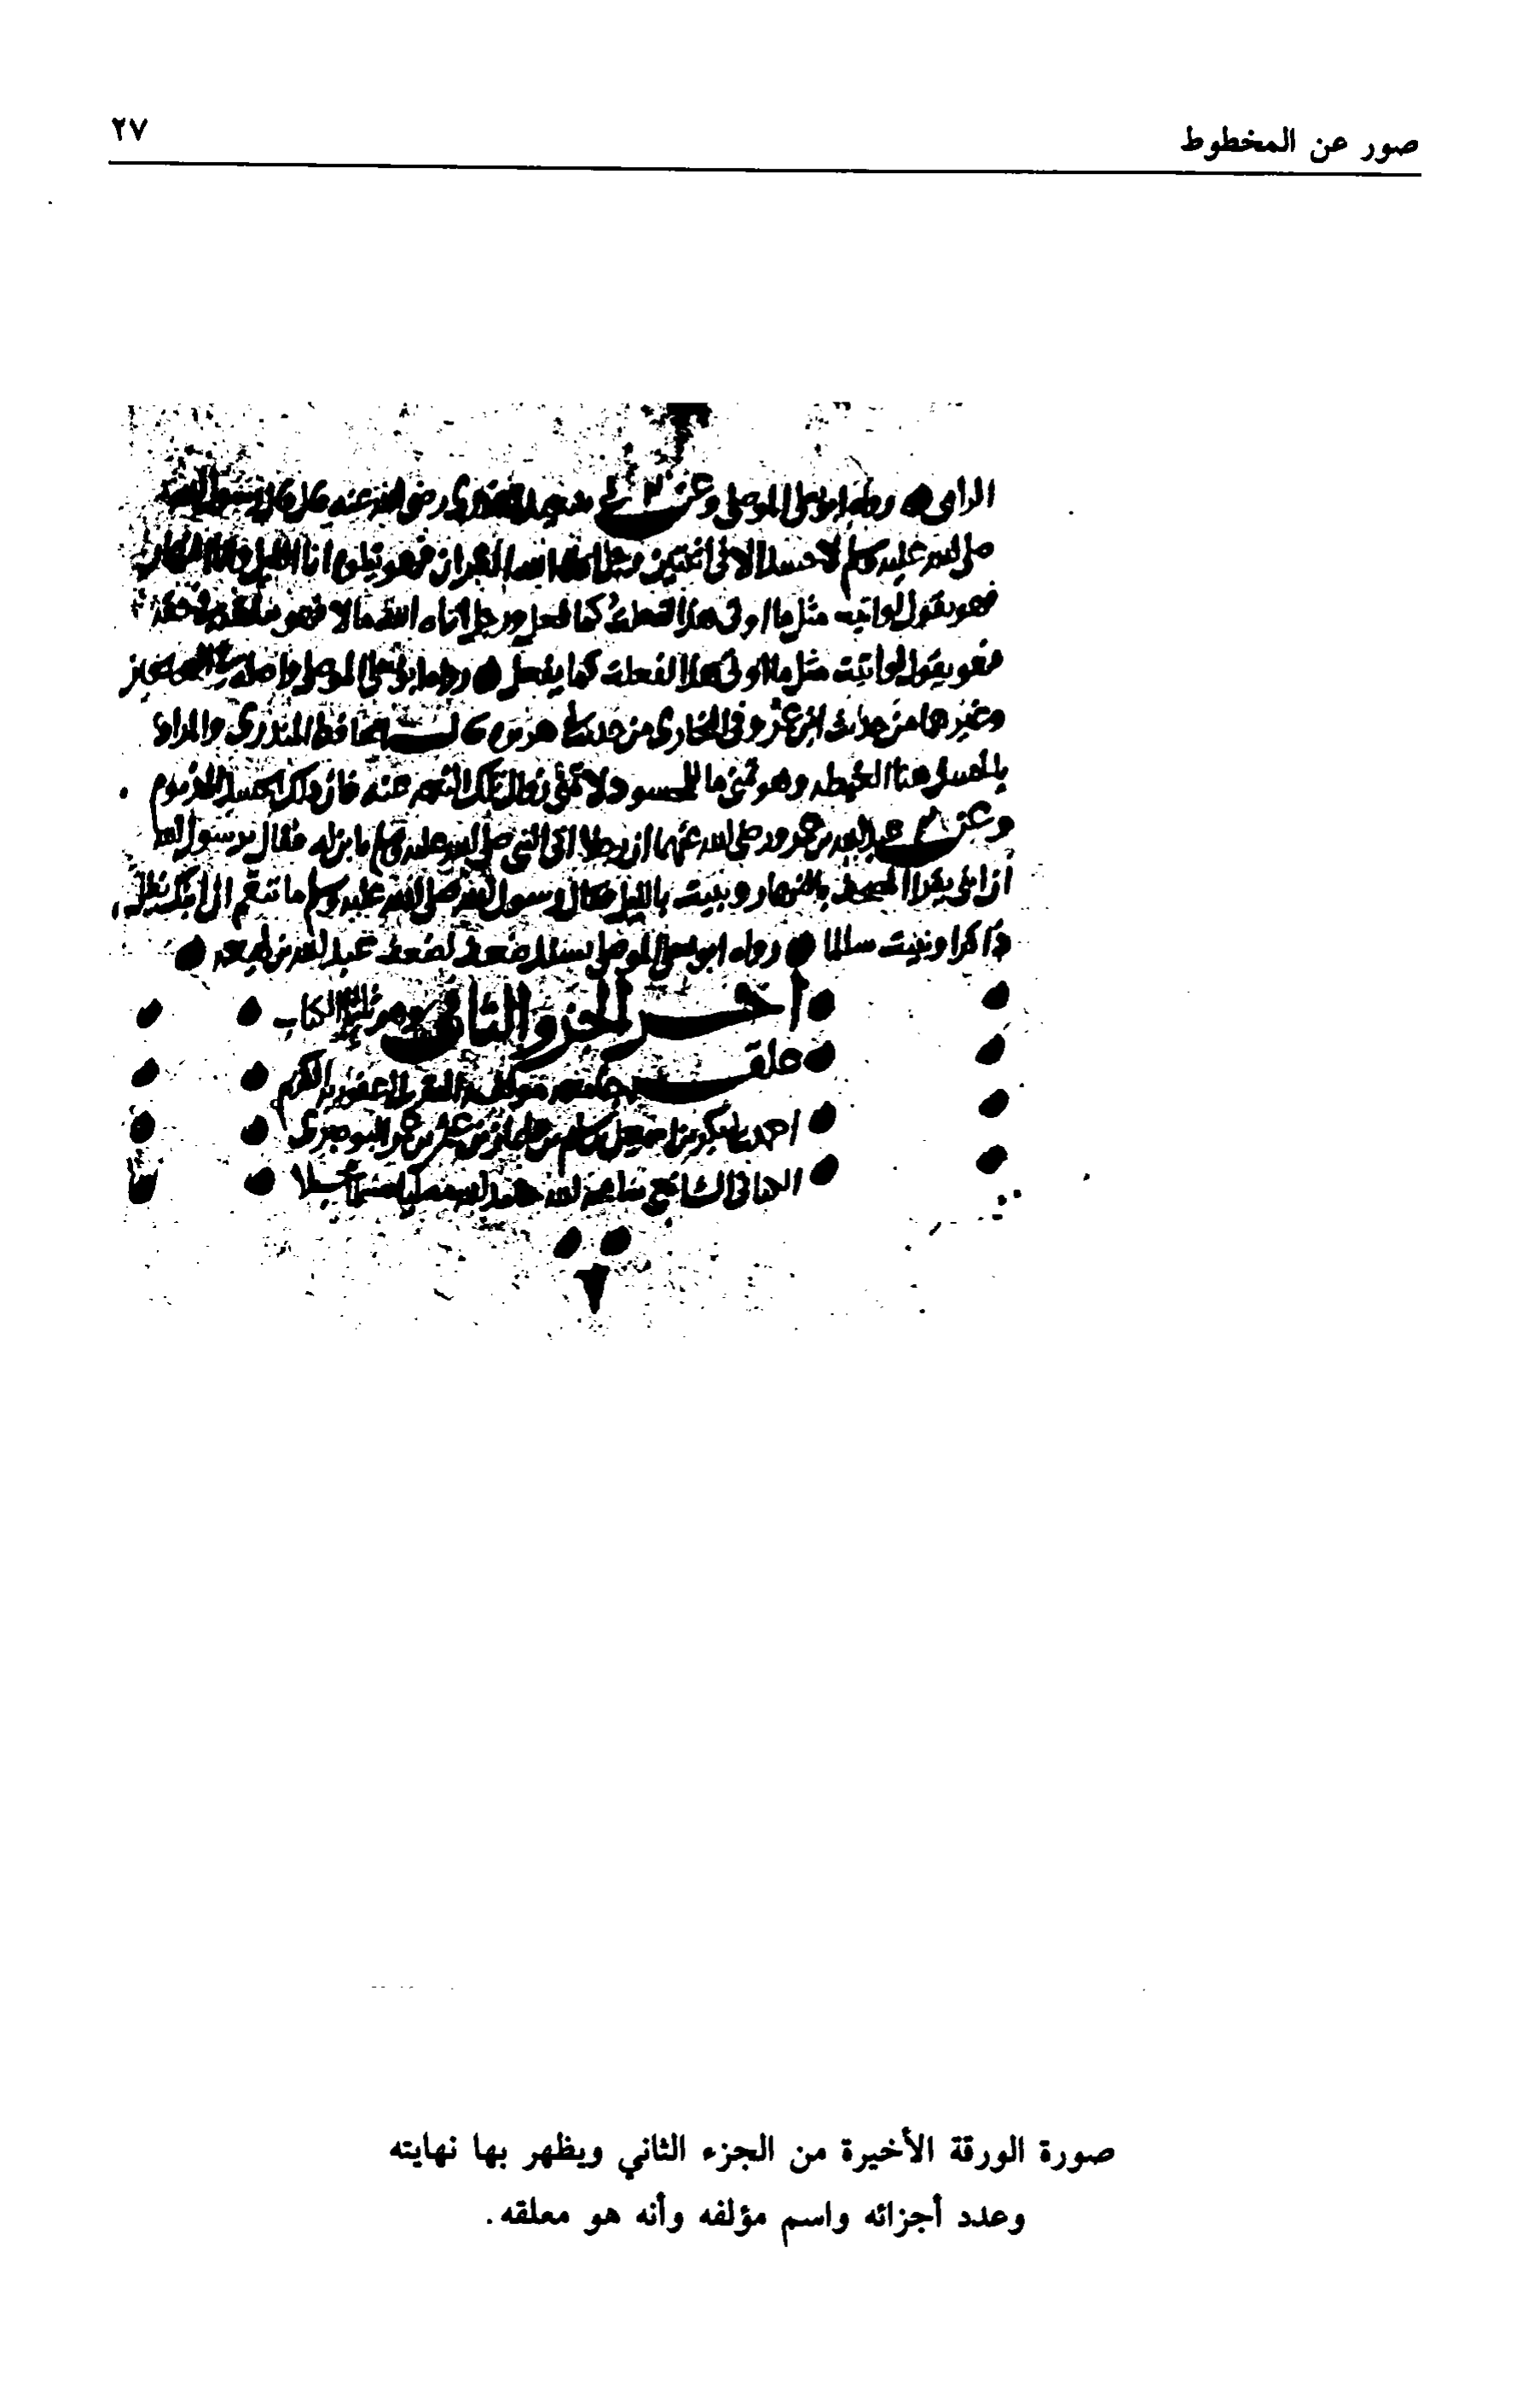 صور عن المخطوط
٢٧
رواه ابو يعلى الموصلي وعن ابي سعيد الخدري رضي الله عنه قال قال رسول الله
صلى الله عليه وسلم لا حسد الا في اثنتين رجل اتاه الله القران فهو يتلوه انا الليل وانا النهار
فهو يقول لو اتيت مثل ما اوتي هذا لفعلت كما فعل ورجل اتاه الله مالا فهو ينفقه في حقه
فهو يقول لو اتيت مثل ما اوتي هذا لفعلت كما يفعل رواه ابو يعلى الموصلي واصله في الصحيحين
وغيرهما من حديث ابن عمر وفي البخاري من حديث ابي هريرة قال الحافظ المنذري والمراد
بالحسد هنا الغبطه وهو تمني ما للمحسود لا تمني زوال تلك النعمه عنه فان ذلك الحسد المذموم
وعن عبد الله بن عمرو رضي الله عنهما ان رجلا اتى النبي صلى الله عليه وسلم بابن له فقال يرسول الله
ان ابني يقرا المصحف بالنهار ويبيت بالليل فقال رسول الله صلى الله عليه وسلم ما تنقم ان ابنك يظل
ذاكرا ويبيت سالما رواه ابو يعلى الموصلي بسند ضعيف لضعف عبد الله بن لهيعه
اخر الجزو الثاني الكتاب
علقه جامعه الكريم
احمد بن ابي بكر بن اسمعيل بن سليم بن قايماز بن عثمن بن عمر البوصيري
الشافعي حامدا لله
صورة الورقة الأخيرة من الجزء الثاني ويظهر بها نهايته
وعدد أجزائه واسم مؤلفه وأنه هو معلقه.